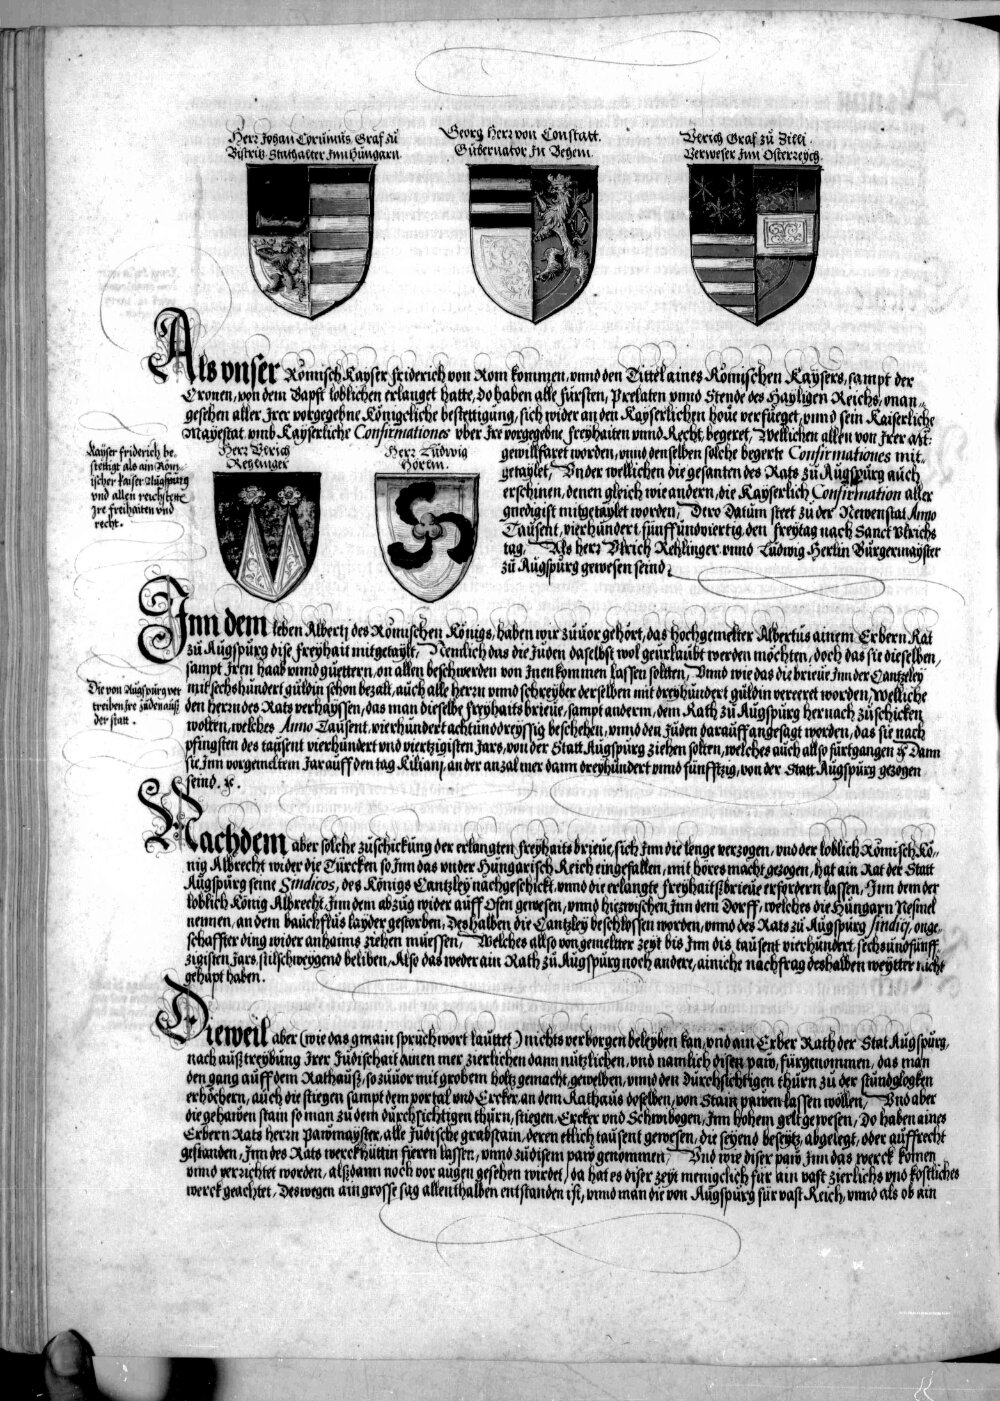 Herr Johan Coruinus Graf zů
Bistritz Stathalter Inn Hungarn.
Georg Herr von Constatt.
Gubernator In Behem.
Vlrich Graf zů Zilli.
Verweser Inn Osterreych.
Als vnser Römisch Kayser Friderich von Rom kommen, vnnd den Tittel aines Römischen Kaysers, sampt der
Cronen, von dem Bapst loblichen erlanget hatte, Do haben alle Fürsten, Prelaten vnnd Stende des Hayligen Reichs, vnan=
gesehen aller Irer vorgegebne Königcliche bestettigung, sich wider an den Kayserlichen houe verfueget, vnnd sein Kaiserliche
Mayestat vmb Kayserliche Confirmationes vber Ire vorgegebne freyhaiten vnnd Recht, begeret, Wellichen allen von Irer Mt:
gewillfaret worden, vnnd denselben solche begerte Confirmationes mit=
getaylet, Vnder wellichen die gesanten des Rats zů Augspurg auch
erschinen, denen gleich wie andern, die Kayserlich Confirmation aller
gnedigist mitgetaylet worden, Dero Datum steet zů der Newenstat Anno
Tausent, vierhundert, funffundviertig, den freytag nach Sanct Vlrichs
tag, Als herr Vlrich Rehlinger vnnd Ludwig Herlin Burgermayster
zů Augspurg gewesen seind.
Kayser friderich be=
stettigt als ain Röm=
ischer kaiser Augspurg
vnd allen reichstette
Jre freihaiten vnd
recht.
Herr Vlrich
Rehlinger
Herr Ludwig
Hörlin.
Inn dem leben Alberti des Römischen Königs, haben wir zuuor gehört, das hochgemelter Albertus ainem Erbern Rat
zů Augspurg dise freyhait mitgetaylt, Nemlich das die Juden daselbst wol geurlaubt werden möchten, doch das sie dieselben,
sampt Iren haab vnnd guettern, on allen beschwerden von Inen kommen lassen sollten, Vnnd wie das die brieue Inn der Cantzeley
mit sechshundert guldin schon bezalt, auch alle herrn vnnd schreyber derselben mit dreyhundert guldin vereret worden, Welliche
den herrn des Rats verhayssen, das man dieselbe freyhaits brieue, sampt anderm, dem Rath zů Augspurg hernach zůschicken
wolten, welches Anno Tausent, vierhundert achtunddreyssig beschehen, vnnd den Juden darauff angesagt worden, das sie nach
pfingsten des tausent vierhundert vnd viertzigisten Jars, von der Statt Augspurg ziehen solten, welches auch allso furtgangen ꝛc Dann
sie Inn vorgemeltem Jar auff den tag Kiliani, an der anzal mer dann dreyhundert vnnd funfftzig, von der Statt Augspurg gezogen
seind. ꝛc.
Die von Augspurg ver
treiben Jre Juden auß
der statt.
Nachdem aber solche zůschickung der erlangten freyhaits brieue, sich Inn die lenge verzogen, vnd der loblich Römisch Kö=
nig Albrecht wider die Türcken so Inn das vnder Hungarisch Reich eingefallen, mit höres macht gezogen, hat ain Rat der Statt
Augspurg seine Sindicos, des Königs Cantzley nachgeschickt, vnnd die erlangte freyhaitßbrieue erfordern lassen, Inn dem der
loblich König Albrecht, Inn dem abzug wider auff Ofen gewesen, vnnd hiezwischen Inn dem Dorff, welches die Hungarn Nesmel
nennen, an dem bauchflus layder gestorben, Deshalben die Cantzley beschlossen worden, vnnd des Rats zů Augspurg sindici, onge=
schaffter ding wider anhaims ziehen müessen, Welches allso von gemeltter zeyt bis Inn dis tausent vierhundert sechsundfunff=
zigisten Jars, stilschweygend beliben, Also das weder ain Rath zů Augspurg noch andere, ainiche nachfrag deshalben weytter nicht
gehapt haben.
Dieweil aber (wie das gmain spruchwort lauttet) nichts verborgen beleyben kan, vnd ain Erber Rath der Stat Augspurg,
nach außtreybung Irer Judischait ainen mer zierlichen dann nützlichen, vnd namlich disen paw, fürgenommen, das man
den gang auff dem Rathauß, so zuuor mit grobem holtz gemacht, gewelben, vnnd den Durchsichtigen thurn zu der stundglogken
erhöchern, auch die stiegen sampt dem portal vnd Ercker an dem Rathaus doselben, von Stain pawen lassen wöllen, Vnd aber
die gehawen stain so man zu dem durchsichtigen thurn, stiegen, Ercker vnd Schwibögen, Inn hohem gelt gewesen, Do haben aines
Erbern Rats herrn Pawmayster, alle Judische grabstain, deren etlich tausent gewesen, die seyend beseytz, abgelegt, oder auffrecht
gestanden, Inn des Rats werckhüttin fieren lassen, vnnd zů disem paw genommen, Vnd wie diser paw Inn das werck komen
vnnd verrichtet worden, alßdann noch vor augen gesehen wirdet, da hat es diser zeyt menigclich für ain vast zierlichs vnd köstliches
werck geachtet, Deswegen ain grosse sag allenthalben entstanden ist, vnnd man die von Augspurg für vast Reich, vnnd als ob ain